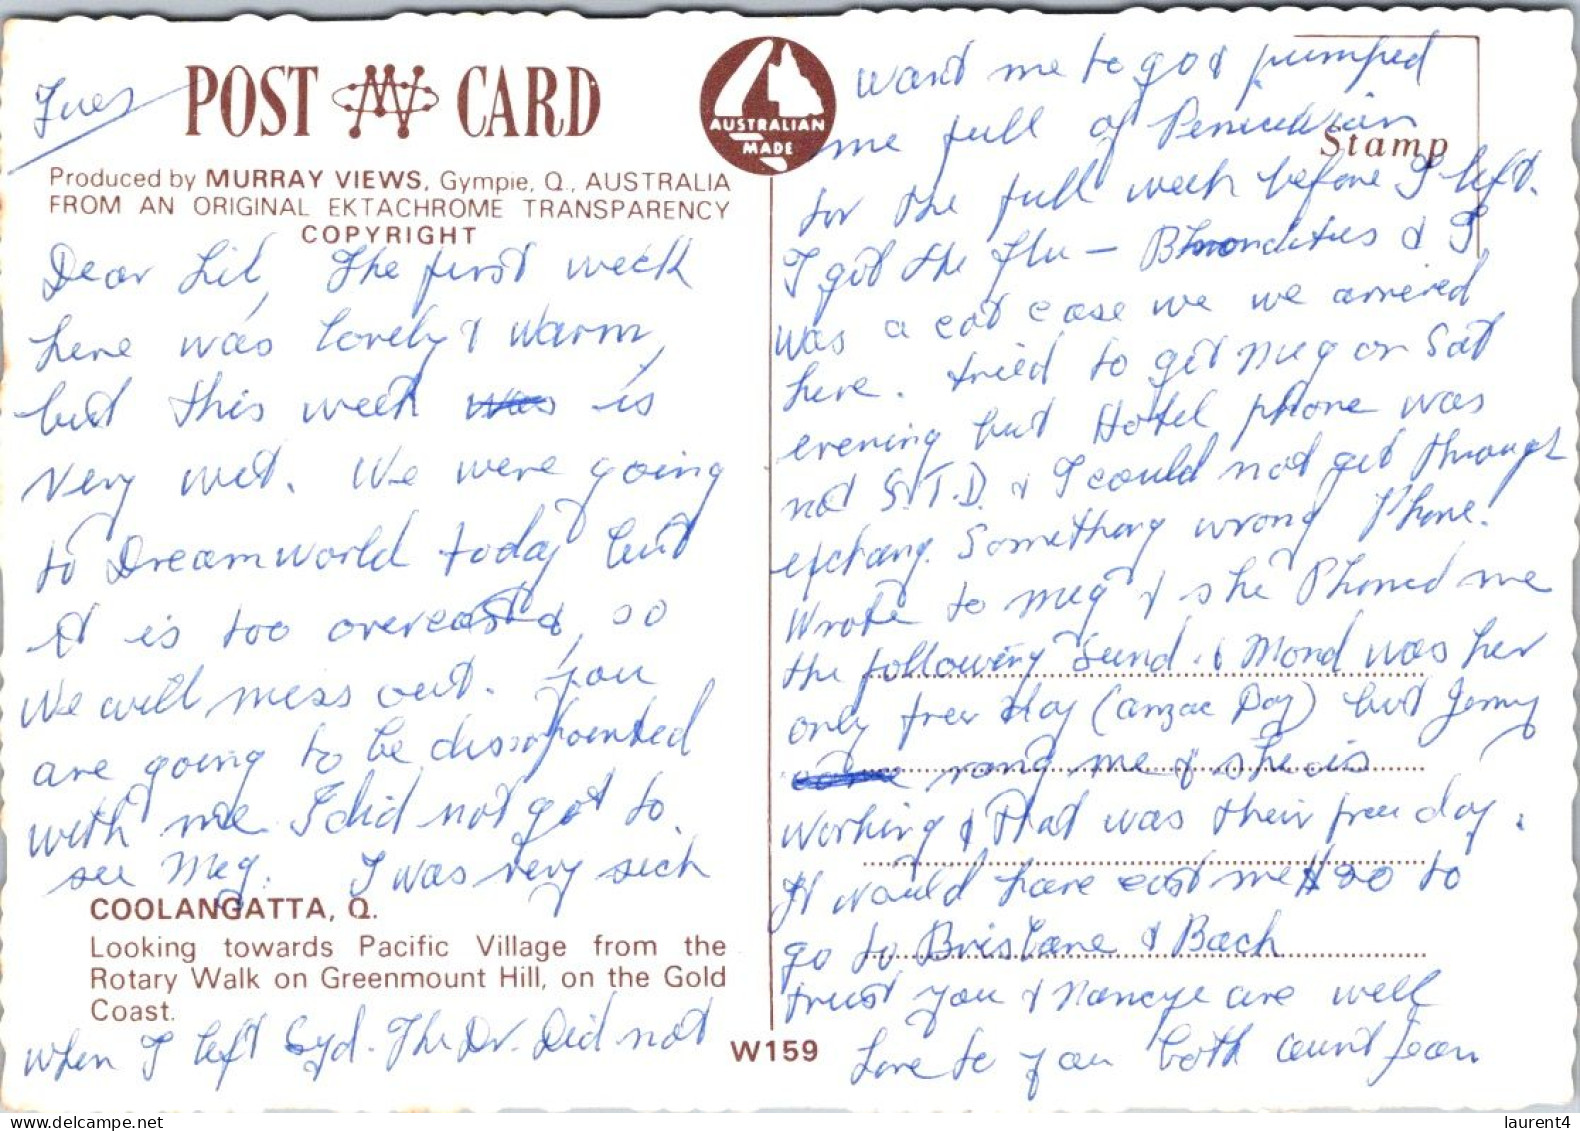 Tues
POST CARD
AUSTRALIAN
MADE
Stamp
Produced by MURRAY VIEWS, Gympie, Q., AUSTRALIA
FROM AN ORIGINAL EKTACHROME TRANSPARENCY
COPYRIGHT
Dear Lil, The first week
here was lovely & warm,
but this week was is
very wet. We were going
to Dreamworld today but
it is too overcast, so
We will miss out. You
are going to be dissapointed
with me I did not get to.
see Meg. I was very sick
COOLANGATTA, Q.
Looking towards Pacific Village from the
Rotary Walk on Greenmount Hill, on the Gold
Coast.
when I left Syd. The Dr. Did not
W159
want me to go & pumped
me full of Penicillian
for the full week before I left.
I got the flu - Bhronchitus & I
was a cot case we we arrived
here. tried to get Meg on Sat
evening but Hotel phone was
not S.T.D. & I could not get through
exchang. Something wrong Phone.
Wrote to Meg & she Phoned me
the following Sund. & Mond was her
only free day (anzac Day) but Jenny
rang me & she is
working & that was their free day.
It would have cost me $20 to
go to Brisbane & Back
trust you & Nancye are well
Love to you both aunt Jean
laurent4